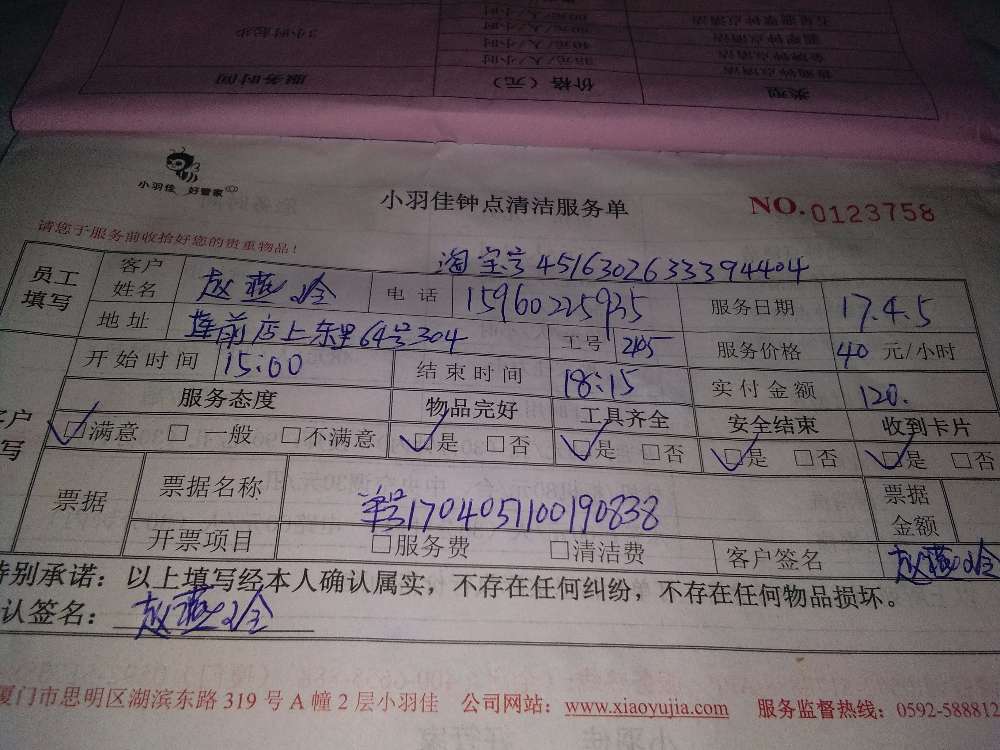 类型 价格（元） 服务时间
3小时起步
小羽佳 好管家
小羽佳钟点清洁服务单
NO.0123758
请您于服务前收拾好您的贵重物品！
淘宝号4516302633394404
员工填写 客户姓名 赵燕玲 电话 15960225935 服务日期 17.4.5
地址 莲前店上东里64号304 工号 2405 服务价格 40元/小时
开始时间 15:00 结束时间 18:15 实付金额 120.
服务态度 物品完好 工具齐全 安全结束 收到卡片
☑满意 □一般 □不满意 ☑是 □否 ☑是 □否 ☑是 □否 ☑是 □否
票据 票据名称 单号1704051100190838 票据金额
开票项目 □服务费 □清洁费 客户签名 赵燕玲
特别承诺：以上填写经本人确认属实，不存在任何纠纷，不存在任何物品损坏。
认签名：赵燕玲
厦门市思明区湖滨东路319号A幢2层小羽佳 公司网站：www.xiaoyujia.com 服务监督热线：0592-588812